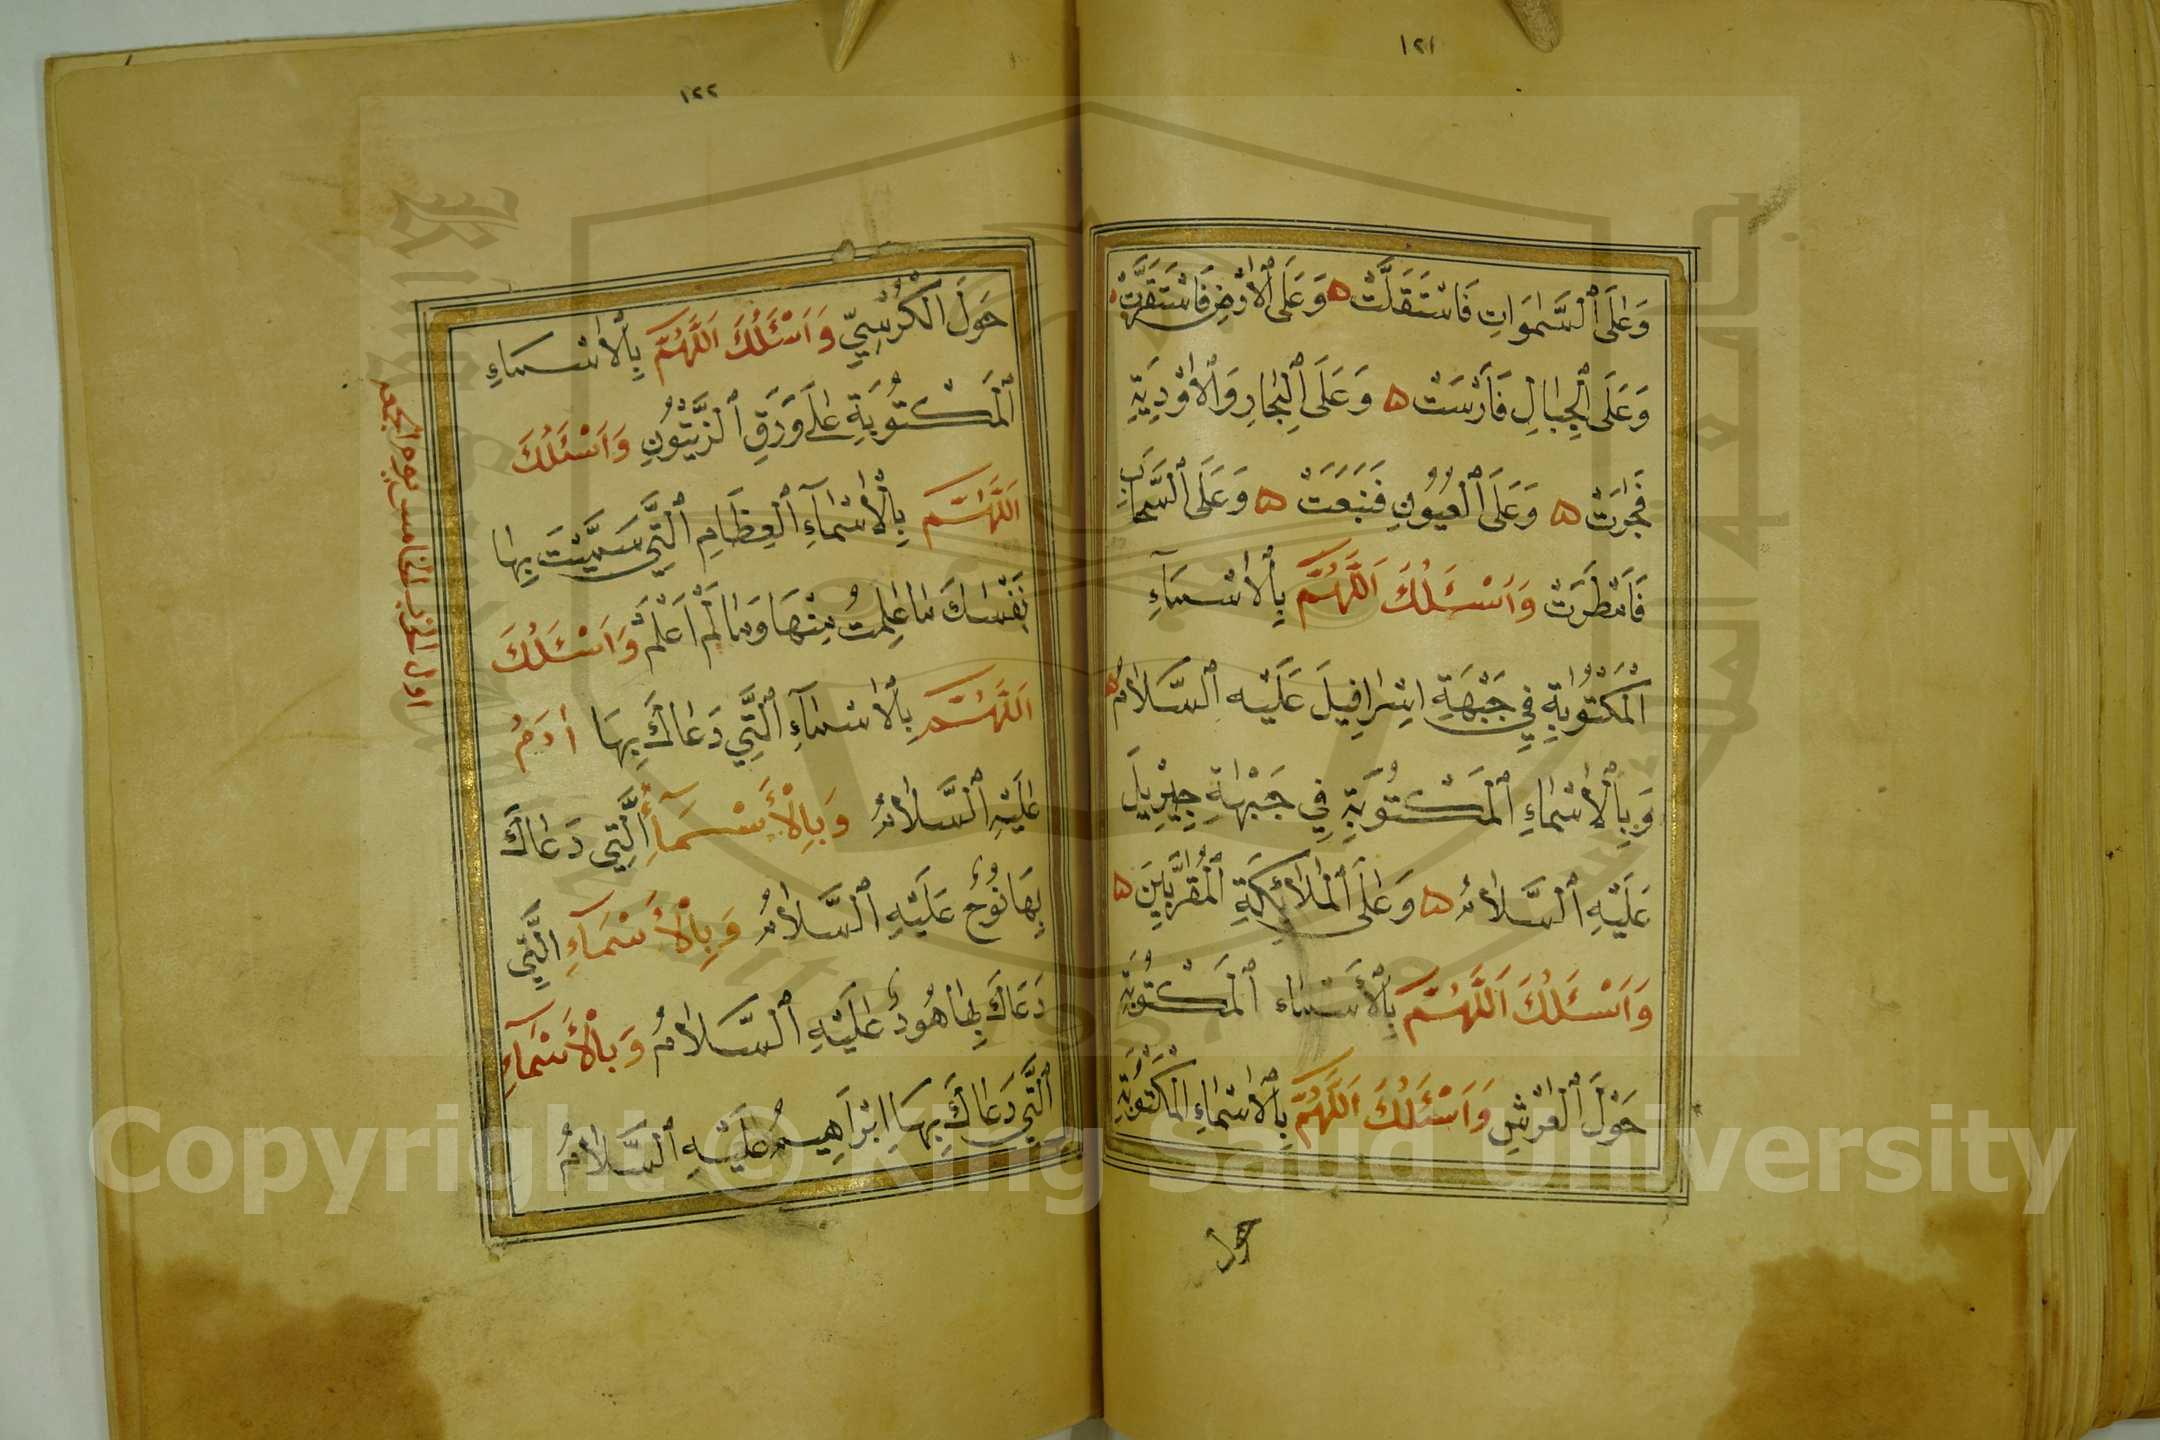 ١٢١
وَعَلَى ٱلسَّمٰوَاتِ فَاسْتَقَلَّتْ ه وَعَلَى ٱلْاَرْضِ فَاسْتَقَرَّتْ ه
وَعَلَى ٱلْجِبَالِ فَاَرْسَتْ ه وَعَلَى ٱلْبِحَارِ وَٱلْاَوْدِيَةِ
فَجَرَتْ ه وَعَلَى ٱلْعُيُونِ فَنَبَعَتْ ه وَعَلَى ٱلسَّحَابِ
فَاَمْطَرَتْ وَاَسْئَلُكَ اَللَّهُمَّ بِٱلْاَسْمَآءِ
ٱلْمَكْتُوبَةِ فِي جَبْهَةِ اِسْرَافِيلَ عَلَيْهِ ٱلسَّلَامُ ه
وَبِٱلْاَسْمَاءِ ٱلْمَكْتُوبَةِ فِي جَبْهَةِ جِبْرِيلَ
عَلَيْهِ ٱلسَّلَامُ ه وَعَلَى ٱلْمَلَائِكَةِ ٱلْمُقَرَّبِينَ ه
وَاَسْئَلُكَ اَللَّهُمَّ بِٱلْأَسْمَاء ٱلْمَكْتُوبَةِ
حَوْلَ ٱلْعَرْشِ وَاَسْئَلُكَ اَللَّهُمَّ بِٱلْاَسْمَاءِ ٱلْمَكْتُوبَةِ
١٢٢
حَوْلَ ٱلْكُرْسِيِّ وَاَسْئَلُكَ اَللَّهُمَّ بِٱلْاَسْمَاءِ
ٱلْمَكْتُوبَةِ عَلَى وَرَقِ ٱلزَّيْتُونِ وَاَسْئَلُكَ
اَللَّهُمَّ بِٱلْاَسْمَآءِ ٱلْعِظَامِ ٱلَّتِي سَمَّيْتَ بِهَا
نَفْسَكَ مَا عَلِمْتُ مِنْهَا وَمَا لَمْ اَعْلَمْ وَاَسْئَلُكَ
اَللَّهُمَّ بِٱلْاَسْمَآءِ ٱلَّتِي دَعَاكَ بِهَا أدَمُ
عَلَيْهِ ٱلسَّلَامُ وَبِٱلْأَسْمَآءِ ٱلَّتِي دَعَاكَ
بِهَا نُوحٌ عَلَيْهِ ٱلسَّلَامُ وَبِٱلْأَسْمَاءِ الَّتِي
دَعَاكَ بِهَا هُودٌ عَلَيْهِ ٱلسَّلَامُ وَبِٱلْأَسْمَآءِ
ٱلَّتِي دَعَاكَ بِهَا اِبْرَاهِيمُ عَلَيْهِ ٱلسَّلَامُ
اول الحزب الخامس يوم الجمعه
Copyright © King Saud University